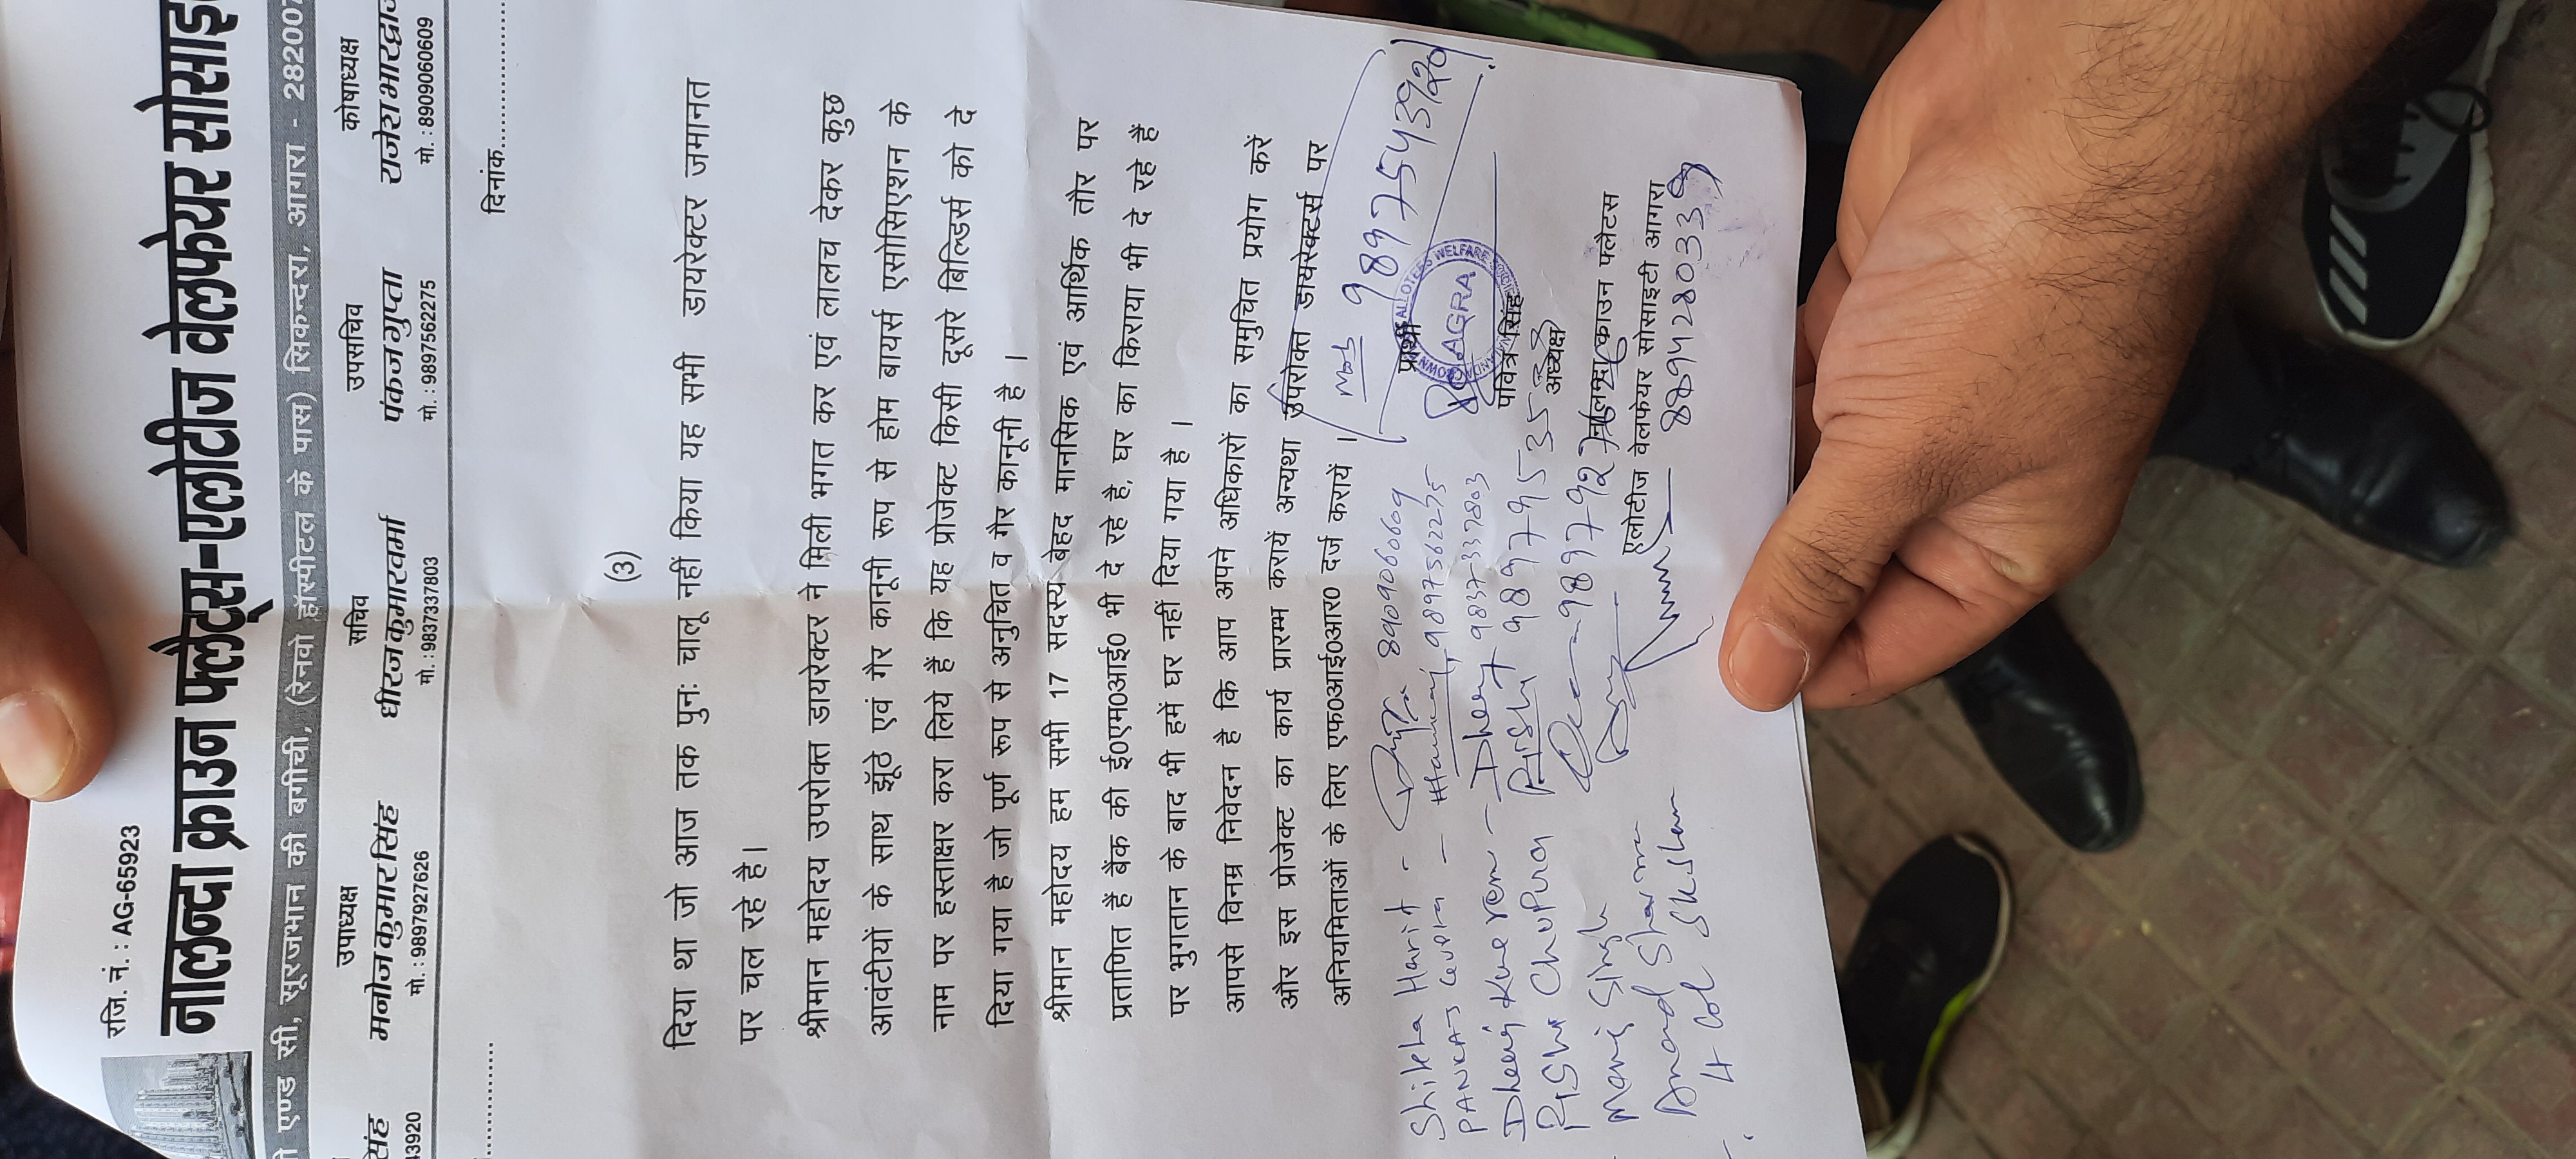 रजि. नं. : AG-65923
नालन्दा क्राउन फ्लैट्स-एलोटीज वेलफेयर सोसाइ
एण्ड सी, सूरजभान की बगीची, (रेनवो हॉस्पीटल के पास) सिकन्दरा, आगरा - 282007
उपाध्यक्ष सचिव उपसचिव कोषाध्यक्ष
सिंह मनोज कुमार सिंह धीरज कुमार वर्मा पंकज गुप्ता राजेश भारद्वाज
43920 मो. : 9897927626 मो. : 9837337803 मो. : 9897562275 मो. : 8909060609
दिनांक....................
(3)
दिया था जो आज तक पुनः चालू नहीं किया यह सभी डायरेक्टर जमानत
पर चल रहे है।
श्रीमान महोदय उपरोक्त डायरेक्टर ने मिली भगत कर एवं लालच देकर कुछ
आवंटीयों के साथ झूँठे एवं गैर कानूनी रूप से होम बायर्स एसोसिएशन के
नाम पर हस्ताक्षर करा लिये हैं कि यह प्रोजेक्ट किसी दूसरे बिल्डिर्स को दे
दिया गया है जो पूर्ण रूप से अनुचित व गैर कानूनी है ।
श्रीमान महोदय हम सभी 17 सदस्य बेहद मानसिक एवं आर्थिक तौर पर
प्रताणित हैं बैंक की ई0एम0आई0 भी दे रहे है, घर का किराया भी दे रहे हैं
पर भुगतान के बाद भी हमें घर नहीं दिया गया है ।
आपसे विनम्र निवेदन है कि आप अपने अधिकारों का समुचित प्रयोग करें
और इस प्रोजेक्ट का कार्य प्रारम्भ करायें अन्यथा उपरोक्त डायरेक्टर्स पर
अनियमिताओं के लिए एफ0आई0आर0 दर्ज करायें ।
Mob 9897543920
Shikha Harit - 8909060609
प्रार्थी
PANKAJ Gupta - 9897562275
AGRA
Dheeraj - Dheeraj 9837337803
पवित्र सिंह
Rishi Rishi
अध्यक्ष
Manoj Singh 9897927626
नालन्दा काउन फ्लैटस
Anand Sharma
एलोटीज वेलफेयर सोसाइटी आगरा
Lt Col 8894280339